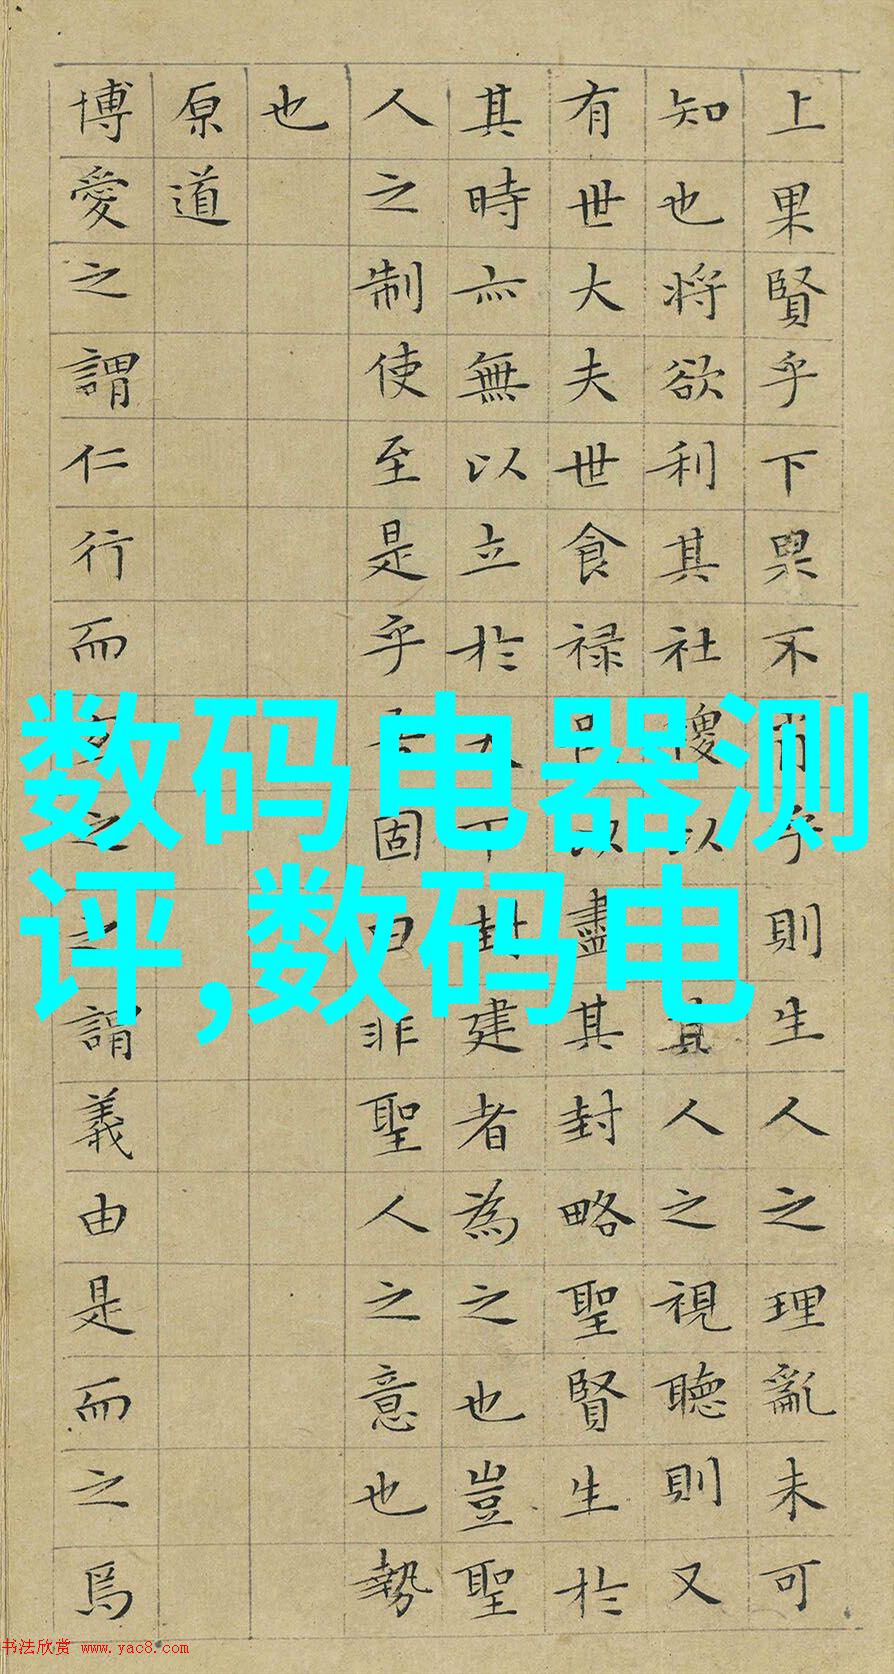 上果賢乎下果不肖乎則生人之理亂未可
知也將欲利其社稷以其人之視聽則又
有世大夫世食禄邑以盡其封略聖賢生於
其時亦無以立於天下封建者為之也豈聖
人之制使至是乎吾固曰非聖人之意也勢
也
原道
博愛之謂仁行而之之謂義由是而之焉
数码电器测
评,数码电
书法欣赏 www.yac8.com